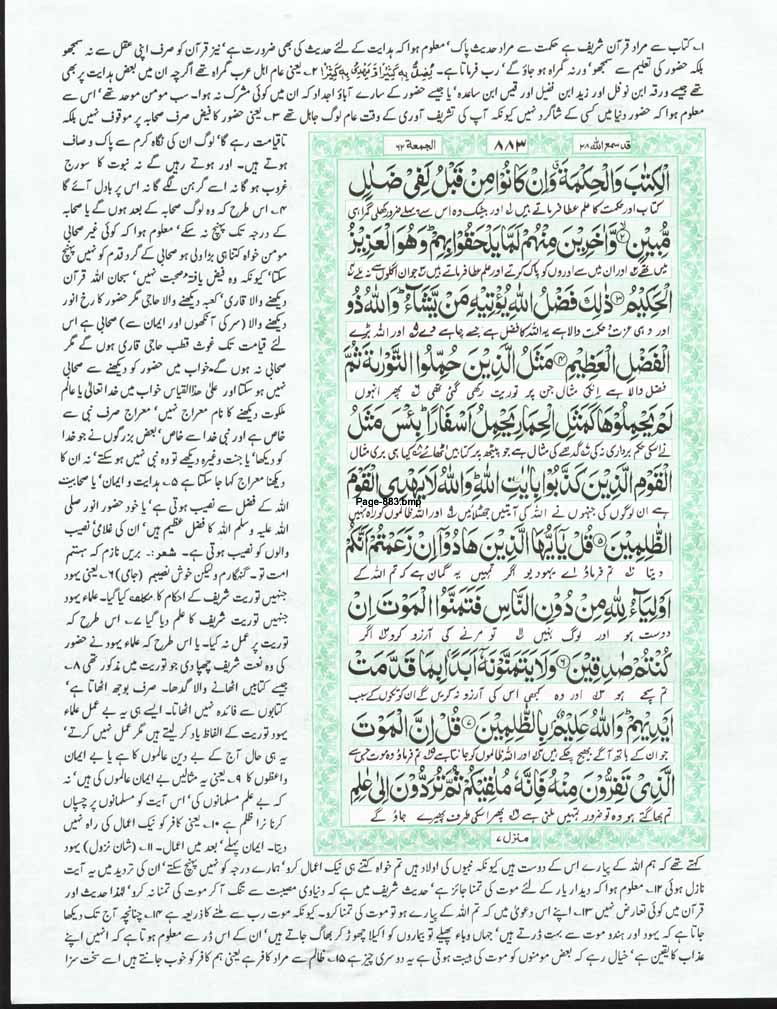 ۱۔ کتاب سے مراد قرآن شریف ہے حکمت سے مراد حدیث پاک' معلوم ہوا کہ ہدایت کے لئے حدیث کی بھی ضرورت ہے' نیز قرآن کو صرف اپنی عقل سے نہ سمجھو
بلکہ حضور کی تعلیم سے سمجھو' ورنہ گمراہ ہو جاؤ گے' رب فرماتا ہے۔ یُضِلُّ بِهٖ كَثِیْرًا وَّ یَهْدِیْ بِهٖ كَثِیْرًا ۲۔ یعنی عام اہل عرب گمراہ تھے اگرچہ ان میں بعض ہدایت پر بھی
تھے جیسے ورقہ ابن نوفل اور زید ابن فضیل اور قیس ابن ساعدہ' یا جیسے حضور کے سارے آباؤ اجداد کہ ان میں کوئی مشرک نہ ہوا۔ سب مومن موحد تھے' اس سے
معلوم ہوا کہ حضور دنیا میں کسی کے شاگرد نہیں کیونکہ آپ کی تشریف آوری کے وقت عام لوگ جاہل تھے ۳۔ یعنی حضور کا فیض صرف صحابہ پر موقوف نہیں بلکہ
قد سمع الله ۲۸
۸۸۳
الجمعة ۶۲
الْكِتٰبَ وَالْحِكْمَةَ وَاِنْ كَانُوْا مِنْ قَبْلُ لَفِیْ ضَلٰلٍ
کتاب اور حکمت کا علم عطا فرماتے ہیں اور بیشک وہ اس سے پہلے ضرور کھلی گمراہی
مُّبِیْنٍ ۲ وَّاٰخَرِیْنَ مِنْهُمْ لَمَّا یَلْحَقُوْا بِهِمْ وَهُوَ الْعَزِیْزُ
میں تھے اور ان میں سے اوروں کو پاک کرتے اور علم عطا فرماتے ہیں جو ان اگلوں سے نہ ملے
الْحَكِیْمُ ۳ ذٰلِكَ فَضْلُ اللهِ یُؤْتِیْهِ مَنْ یَّشَآءُ وَاللهُ ذُو
اور وہی عزت و حکمت والا ہے یہ اللہ کا فضل ہے جسے چاہے دے اور اللہ بڑے
الْفَضْلِ الْعَظِیْمِ ۴ مَثَلُ الَّذِیْنَ حُمِّلُوا التَّوْرٰىةَ ثُمَّ
فضل والا ہے انکی مثال جن پر توریت رکھی گئی تھی پھر انہوں
لَمْ یَحْمِلُوْهَا كَمَثَلِ الْحِمَارِ یَحْمِلُ اَسْفَارًا بِئْسَ مَثَلُ
نے اسکی حکم برداری نہ کی گدھے کی مثال ہے جو پیٹھ پر کتابیں اٹھائے کیا ہی بری مثال
الْقَوْمِ الَّذِیْنَ كَذَّبُوْا بِاٰیٰتِ اللهِ وَاللهُ لَا یَهْدِی الْقَوْمَ
Page-883.bmp
ہے ان لوگوں کی جنہوں نے اللہ کی آیتیں جھٹلائیں اور اللہ ظالموں کو راہ نہیں
الظّٰلِمِیْنَ ۵ قُلْ یٰۤاَیُّهَا الَّذِیْنَ هَادُوْۤا اِنْ زَعَمْتُمْ اَنَّكُمْ
دیتا تم فرماؤ اے یہودیو اگر تمہیں یہ گمان ہے کہ تم اللہ کے
اَوْلِیَآءُ لِلهِ مِنْ دُوْنِ النَّاسِ فَتَمَنَّوُا الْمَوْتَ اِنْ
دوست ہو اور لوگ نہیں تو مرنے کی آرزو کرو اگر
كُنْتُمْ صٰدِقِیْنَ ۶ وَلَا یَتَمَنَّوْنَهٗۤ اَبَدًۢا بِمَا قَدَّمَتْ
تم سچے ہو اور وہ کبھی اس کی آرزو نہ کریں گے ان کوتکوں کے سبب
اَیْدِیْهِمْ وَاللهُ عَلِیْمٌۢ بِالظّٰلِمِیْنَ ۷ قُلْ اِنَّ الْمَوْتَ
جو ان کے ہاتھ آگے بھیج چکے ہیں اور اللہ ظالموں کو جانتا ہے تم فرماؤ وہ موت جس سے
الَّذِیْ تَفِرُّوْنَ مِنْهُ فَاِنَّهٗ مُلٰقِیْكُمْ ثُمَّ تُرَدُّوْنَ اِلٰى عٰلِمِ
تم بھاگتے ہو وہ تو ضرور تمہیں ملنی ہے پھر اسکی طرف پھیرے جاؤ گے
منزل ۷
تاقیامت رہے گا' لوگ ان کی نگاہ کرم سے پاک و صاف
ہوتے ہیں۔ اور ہوتے رہیں گے نہ نبوت کا سورج
غروب ہو گا نہ اسے گرہن لگے گا نہ اس پر بادل آئے گا
۴۔ اس طرح کہ وہ لوگ صحابہ کے بعد ہوں گے یا صحابہ
کے درجہ تک پہنچ نہ سکے' معلوم ہوا کہ کوئی غیر صحابی
مومن خواہ کتنا ہی بڑا ولی ہو صحابی کے گرد قدم کو نہیں پہنچ
سکتا' کیونکہ وہ فیض یافتہ صحبت نہیں' سبحان اللہ قرآن
دیکھنے والا قاری' کعبہ دیکھنے والا حاجی مگر حضور کا رخ انور
دیکھنے والا (سر کی آنکھوں اور ایمان سے) صحابی ہے اس
لئے قیامت تک غوث قطب حاجی قاری ہوں گے مگر
صحابی نہ ہوں گے خواب میں حضور کو دیکھنے سے صحابی
نہیں ہو سکتا اور علیٰ ھذا القیاس خواب میں خدا تعالیٰ یا عالم
ملکوت دیکھنے کا نام معراج نہیں' معراج صرف نبی سے
خاص ہے اور نبی خدا سے خاص' بعض بزرگوں نے جو خدا
کو دیکھا' یا جنت وغیرہ دیکھے تو وہ نبی نہیں ہو سکتے' نہ ان کا
دیکھنا معراج کہا جا سکتا ہے ۵۔ ہدایت و ایمان' یا صحابیت
اللہ کے فضل سے نصیب ہوتی ہے' یا خود حضور انور صلی
اللہ علیہ وسلم اللہ کا فضل عظیم ہیں' ان کی غلامی نصیب
والوں کو نصیب ہوتی ہے۔ شعر:۔ بریں نازم کہ ہستم
امت تو۔ گنہگارم ولیکن خوش نصیبم (جامی) ۶۔ یعنی یہود
جنہیں توریت شریف کے احکام کا مکلف کیا گیا۔ علماء یہود
جنہیں توریت شریف کا علم دیا گیا ۷۔ اس طرح کہ
توریت پر عمل نہ کیا۔ یا اس طرح کہ علماء یہود نے حضور
کی وہ نعت شریف چھپا دی جو توریت میں مذکور تھی ۸۔
جیسے کتابیں اٹھانے والا گدھا۔ صرف بوجھ اٹھاتا ہے'
کتابوں سے فائدہ نہیں اٹھاتا۔ ایسے ہی یہ بے عمل علماء
یہود توریت کے الفاظ یاد کر لیتے ہیں مگر عمل نہیں کرتے'
یہ ہی حال آج کے بے دین عالموں کا ہے یا بے ایمان
واعظوں کا ۹۔ یعنی یہ مثالیں بے ایمان عالموں کی ہیں' نہ
کہ بے علم مسلمانوں کی' اس آیت کو مسلمانوں پر چسپاں
کرنا نرا ظلم ہے ۱۰۔ یعنی کافر کو نیک اعمال کی راہ نہیں
دیتا۔ ایمان پہلے' بعد میں اعمال۔ ۱۱۔ (شان نزول) یہود
کہتے تھے کہ ہم اللہ کے پیارے اس کے دوست ہیں کیونکہ نبیوں کی اولاد ہیں تم خواہ کتنے ہی نیک اعمال کرو' ہمارے درجہ کو نہیں پہنچ سکتے' ان کی تردید میں یہ آیت
نازل ہوئی ۱۲۔ معلوم ہوا کہ دیدار یار کے لئے موت کی تمنا جائز ہے' حدیث شریف میں ہے کہ دنیاوی مصیبت سے تنگ آکر موت کی تمنا نہ کرو' لہٰذا حدیث اور
قرآن میں کوئی تعارض نہیں ۱۳۔ اپنے اس دعویٰ میں کہ تم اللہ کے پیارے ہو تو موت کی تمنا کرو۔ کیونکہ موت رب سے ملنے کا ذریعہ ہے ۱۴۔ چنانچہ آج تک دیکھا
جاتا ہے کہ یہود اور ہندو موت سے بہت ڈرتے ہیں' جہاں وباء پھیلے تو بیماروں کو اکیلا چھوڑ کر بھاگ جاتے ہیں' ان کے اس ڈر سے معلوم ہوتا ہے کہ انہیں اپنے
عذاب کا یقین ہے' خیال رہے کہ بعض مومنوں کو موت کی ہیبت ہوتی ہے یہ دوسری چیز ہے ۱۵۔ ظالم سے مراد کافر ہے یعنی ہم کافر کو خوب جانتے ہیں اسے سخت سزا